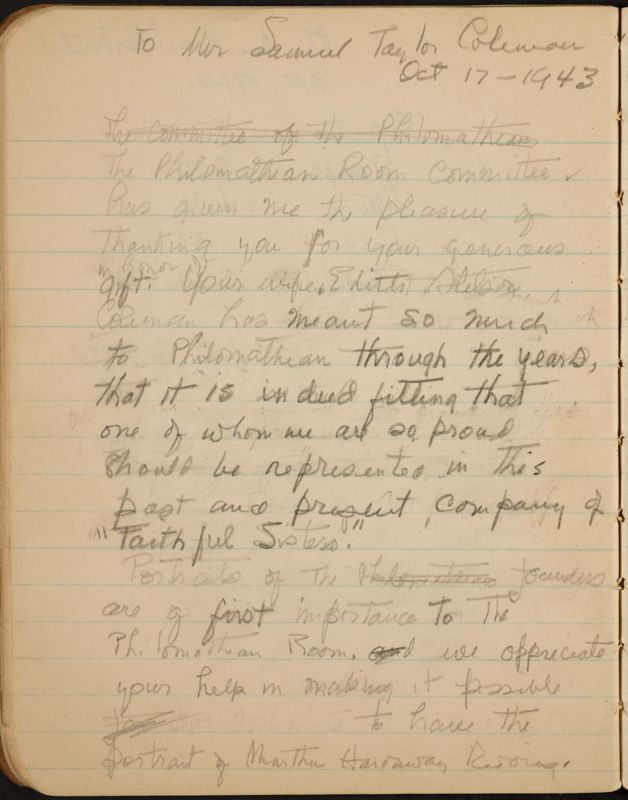 To Mr Samuel Taylor Coleman
Oct 17-1943
The Committee of the Philomathean
The Philomathean Room Committee
has given me the pleasure of
thanking you for your generous
in honor of
gift. Your wife, Edith Stetson
Coleman has meant so much
to Philomathean through the years,
that it is indeed fitting that
one of whom we are so proud
should be represented in this
past and present, company of
"Faithful Sisters."
Portraits of the Philomathean founders
are of first importance to the
Philomathean Room. and we appreciate
your help in making it possible
to have the
portrait of Martha Hardaway